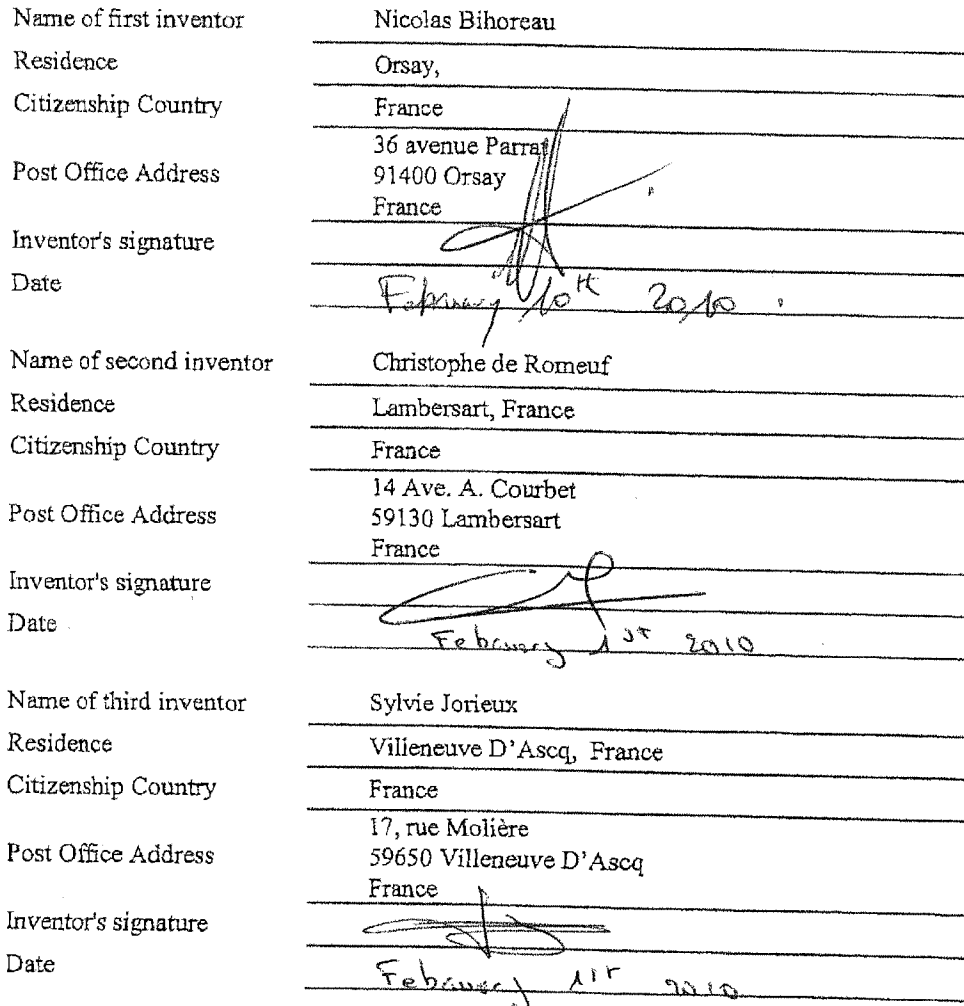 Name of first inventor Nicolas Bihoreau
Residence Orsay,
Citizenship Country France
Post Office Address 36 avenue Parrat
91400 Orsay
France
Inventor's signature
Date February 10th 2010
Name of second inventor Christophe de Romeuf
Residence Lambersart, France
Citizenship Country France
Post Office Address 14 Ave. A. Courbet
59130 Lambersart
France
Inventor's signature
Date February 1st 2010
Name of third inventor Sylvie Jorieux
Residence Villeneuve D'Ascq, France
Citizenship Country France
Post Office Address 17, rue Molière
59650 Villeneuve D'Ascq
France
Inventor's signature
Date February 1st 2010